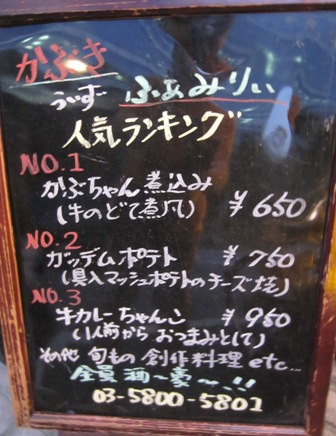 かぶき
うぃず ふぁみりぃ
人気ランキング
NO.1
かぶちゃん煮込み
(牛のどて煮風) ¥650
NO.2
ガッデムポテト ¥750
(具入マッシュポテトのチーズ焼)
NO.3
牛カレーちゃんこ ¥950
(1人前から おつまみとして)
その他 旬もの 創作料理 etc...
全員酒〜豪〜!!
03-5800-5801